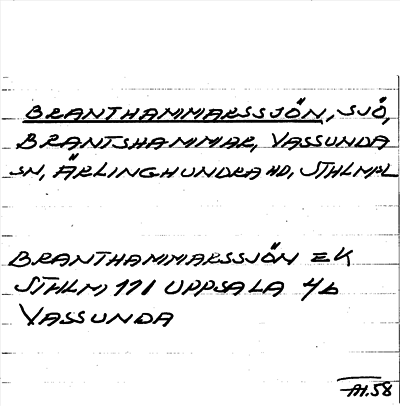 BRANTHAMMARSSJÖN, SJÖ,
BRANTSHAMMAR, VASSUNDA
SN, ÄRLINGHUNDRA HD, STHLM L
BRANTHAMMARSSJÖN EK
STHLM 111 UPPSALA 4/6
VASSUNDA
AH.58